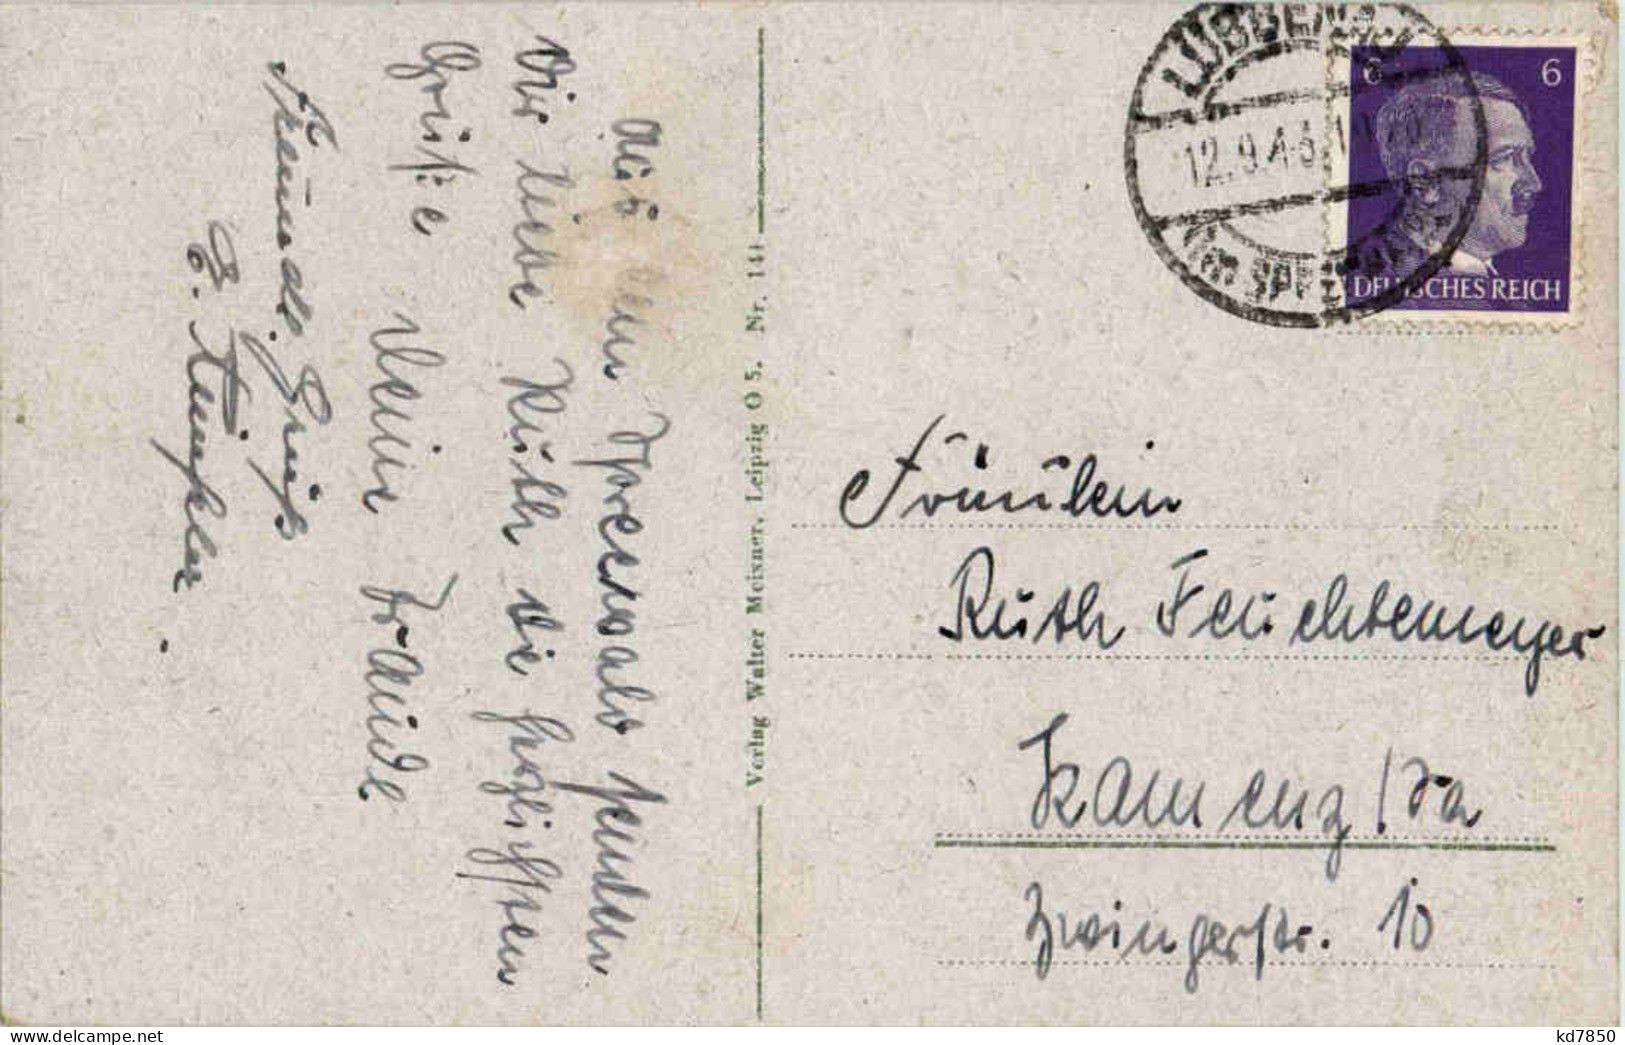 Aus dem Spreewald senden
Dir liebe Ruth die herzlichsten
Grüße Deine Traude
Freundl. Gruß
Verlag Walter Meixner, Leipzig O 5. Nr. 141
LÜBBENAU
12.9.43
SPREEWALD
6 6
DEUTSCHES REICH
Fräulein
Ruth Feuchtemeyer
Kamenz / Sa
Zwingerstr. 10
www.delcampe.net
kd7850